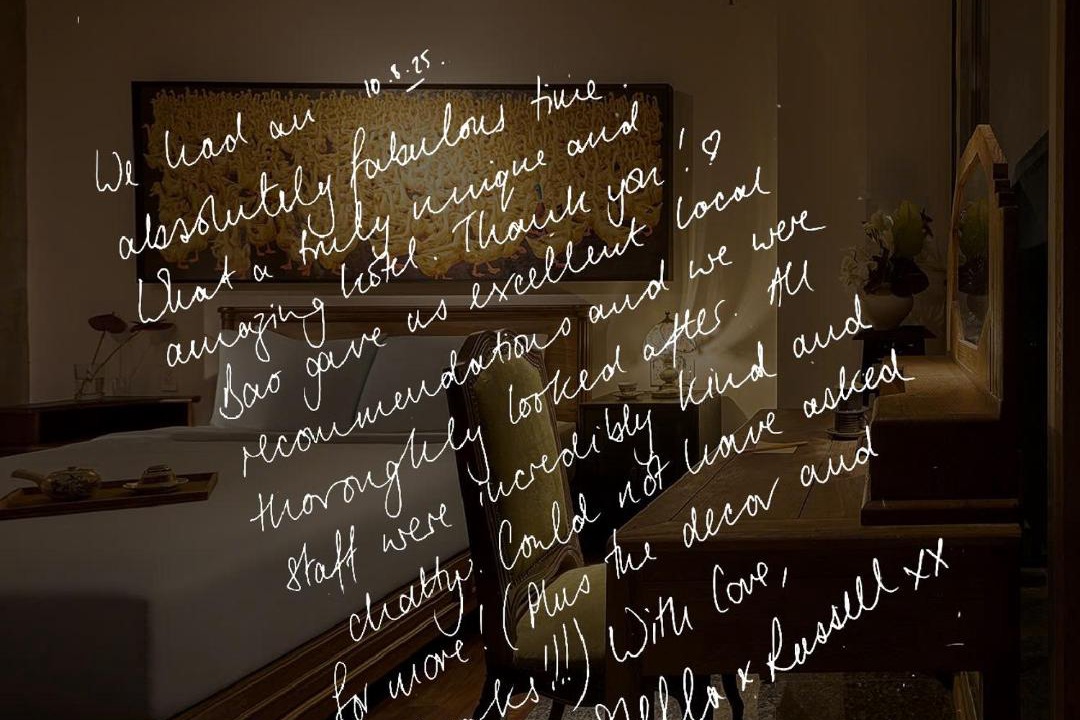 10.8.25.
We had an
absolutely fabulous time.
What a truly unique and
amazing hotel. Thank you! ♡
Bao gave us excellent local
recommendations and we were
thoroughly looked after. All
staff were incredibly kind and
chatty. Could not have asked
for more! (Plus the decor and
!!!) With love,
x Russell xx